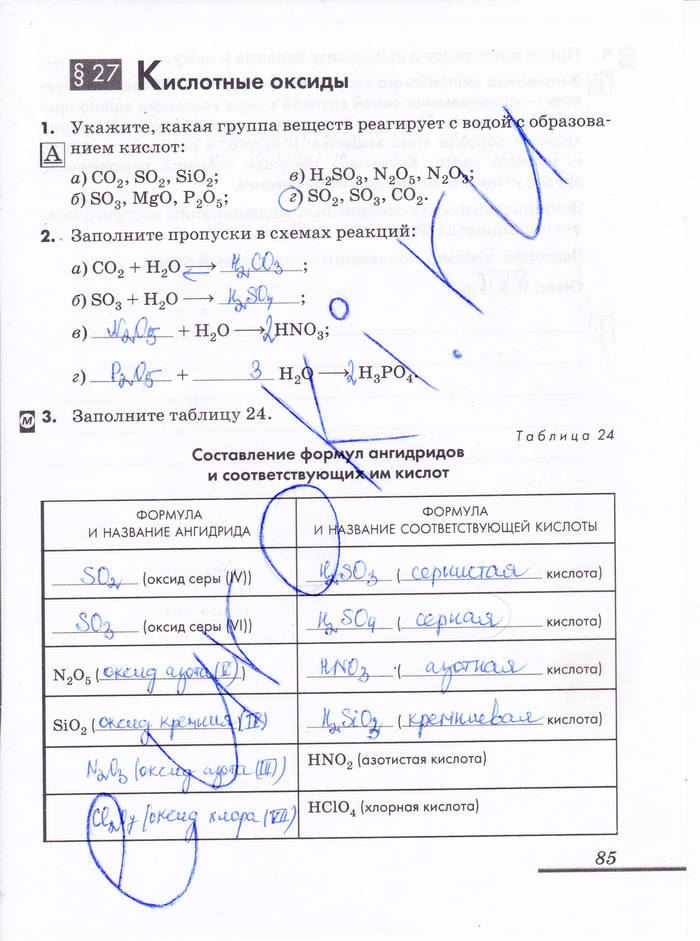 § 27 Кислотные оксиды
1. Укажите, какая группа веществ реагирует с водой с образова-
А нием кислот:
а) CO₂, SO₂, SiO₂; в) H₂SO₃, N₂O₅, N₂O₃;
б) SO₃, MgO, P₂O₅; г) SO₂, SO₃, CO₂.
2. Заполните пропуски в схемах реакций:
а) CO₂ + H₂O ⇄ H₂CO₃;
б) SO₃ + H₂O → H₂SO₄;
в) N₂O₅ + H₂O → 2HNO₃;
г) P₂O₅ + 3 H₂O → 2H₃PO₄.
М 3. Заполните таблицу 24.
Таблица 24
Составление формул ангидридов
и соответствующих им кислот
ФОРМУЛА И НАЗВАНИЕ АНГИДРИДА
ФОРМУЛА И НАЗВАНИЕ СООТВЕТСТВУЮЩЕЙ КИСЛОТЫ
SO₂ (оксид серы (IV)) H₂SO₃ (сернистая кислота)
SO₃ (оксид серы (VI)) H₂SO₄ (серная кислота)
N₂O₅ (оксид азота (V)) HNO₃ (азотная кислота)
SiO₂ (оксид кремния (IV)) H₂SiO₃ (кремниевая кислота)
N₂O₃ (оксид азота (III)) HNO₂ (азотистая кислота)
Cl₂O₇ (оксид хлора (VII)) HClO₄ (хлорная кислота)
85